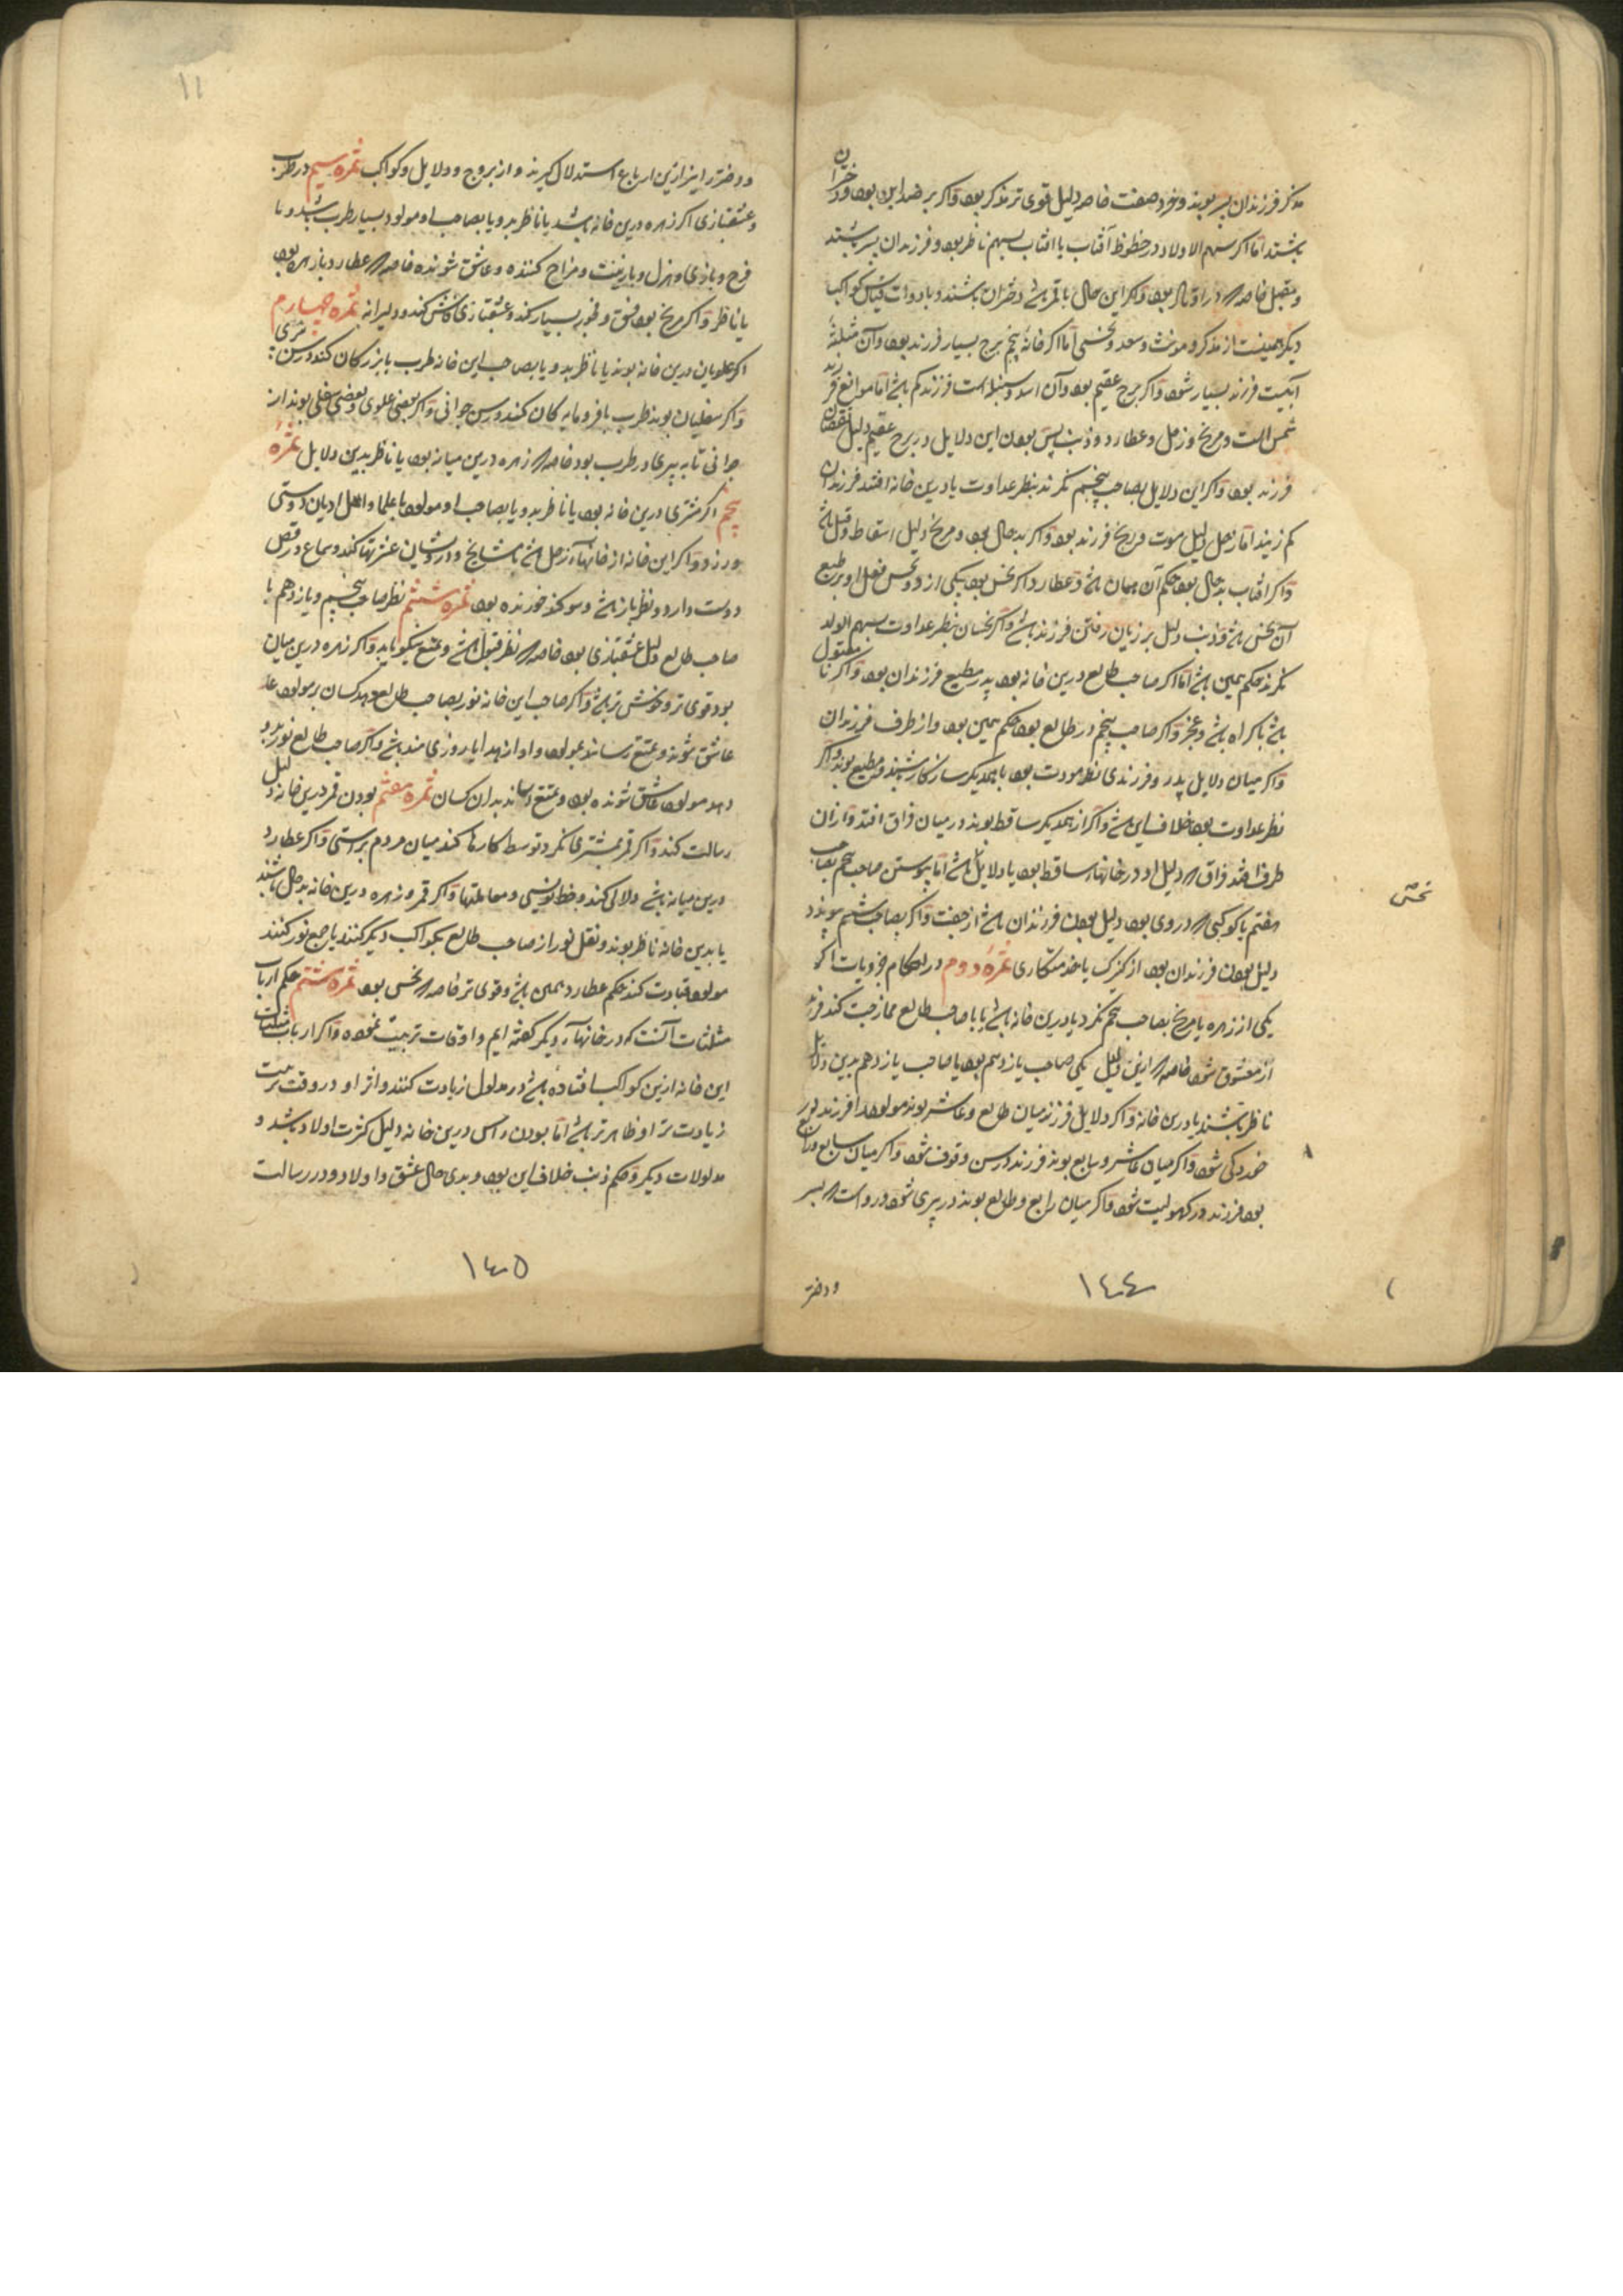 مذکر فرزندان پسر بوند و فرد صفت خاصه دلیل قوی تر مذکر بود و اگر بر ضد این بود دختران
باشند اما اگر سهم الاولاد در حظوظ آفتاب یا افتاب بسهم ناظر بود و فرزندان پسر باشند
و مقبل خاصه که در اوتاد بود و اگر این حال با قمر باشد دختران باشند و با ذوات قیاس کواکب
دیگر همینست از مذکر و مونث و سعد و نحسی اما اگر خانهٔ پنجم برج بسیار فرزند بود و آن مثلثهٔ
آبیست فرزند بسیار شود و اگر برج عقیم بود و آن اسد و سنبله است فرزند کم باشد اما موانع فرزند
شمس است و مریخ و زحل و عطارد و ذنب پس بودن این دلایل در برج عقیم دلیل نقصان
فرزند بود و اگر این دلایل بصاحب پنجم نگرند بنظر عداوت یا درین خانه افتند فرزندان
کم زیند اما زحل دلیل موت و ریخ فرزند بود و اگر بد حال بود و مریخ دلیل اسقاط و قتل باشد
و اگر افتاب بد حال بود حکم آن همان باشد و عطارد اگر نحس بود یکی از دو نحس فعل او بر طبع
آن نحس باشد و ذنب دلیل بر زیان رفتن فرزند باشد و اگر نحسان بنظر عداوت بسهم الولد
نگرند حکم همین باشد اما اگر صاحب طالع درین خانه بود پدر مطیع فرزندان بود و اگر نا مقبول
باشد باکراه باشد و عجز و اگر صاحب پنجم در طالع بود حکم همین بود و از طرف فرزندان
و اگر میان دلایل پدر و فرزندی نظر مودت بود با همدیگر سازگار باشند و مطیع بوند و اگر
نظر عداوت بود خلاف این باشد و اگر از همدیگر ساقط بوند در میان فراق افتد و از ان
طرف افتد فراق که دلیل او در خانهاء ساقط بود یا دلایل باشد اما پیوستن صاحب پنجم بصاحب
هفتم یا کوکبی که در وی بود دلیل بودن فرزندان باشد از جفت و اگر بصاحب ششم پیوندد
دلیل بودن فرزندان بود از کنیزک یا خدمتکاری ثمرهٔ دوم در احکام جزویات اگر
یکی از زهره یا مریخ بصاحب پنجم نگرد یا درین خانه باشد یا با صاحب طالع ممازجت کند فرزند
از معشوق شود خاصه که ازین دلیل یکی صاحب یازدهم بود یا صاحب یازدهم بدین دلایل
ناظر باشند یا درین خانه و اگر دلایل فرزند میان طالع و عاشر بوند مولود را فرزند در
خردکی شود و اگر میان عاشر و سابع بوند فرزند در سن وقوف شود و اگر میان سابع و رابع
بود فرزند در کهولیت شود و اگر میان رابع و طالع بوند در پیری شود و رواست که پسر
نحس
۸
و دختر
۱۴۴
۱۱
و دختر را نیز ازین ارباع استدلال گیرند و از بروج و دلایل و کواکب ثمره سیم در طرب
و عشقبازی اگر زهره درین خانه باشد یا ناظر بدو یا بصاحب او مولود بسیار طرب باشد و با
فرح و بازی و هزل و با زینت و مزاح کننده و عاشق شونده خاصه که عطارد با زهره بود
یا ناظر و اگر مریخ بود فسق و فجور بسیار کند و عشقبازی فاش کند و دلیرانه ثمره چهارم
اگر علویان درین خانه بوند یا ناظر بدو یا بصاحب این خانه طرب با بزرگان کند در سن
و اگر سفلیان بوند طرب با فرومایه گان کند در سن جوانی و اگر بعضی علوی و بعضی سفلی بوند از
جوانی تا به پیری در طرب بود خاصه که زهره درین میانه بود یا ناظر بدین دلایل ثمره
پنجم اگر مشتری درین خانه بود یا ناظر بدو یا بصاحب او مولود با علما و اهل ادیان دوستی
ورزد و اگر این خانه از خانهاء زحل باشد با مشایخ و درویشان عشرتها کند و سماع و رقص
دوست دارد و نظر باز باشد و سوکند خورنده بود ثمره ششم نظر صاحب پنجم و یازدهم با
صاحب طالع دلیل عشقبازی بود خاصه که نظر قبول باشد و تمتع نیکو یابد و اگر زهره درین میان
بود قوی تر و خوش تر باشد و اگر صاحب این خانه نور بصاحب طالع دهد کسان بر مولود
عاشق شوند و تمتع رسانند بمولود و او از هدایا روزی مند باشد و اگر صاحب طالع نور بدو
دهد مولود عاشق شونده بود و تمتع رساند بدان کسان ثمره هفتم بودن قمر درین خانه دلیل
رسالت کند و اگر قمر بمشتری نگرد توسط کارها کند میان مردم براستی و اگر عطارد
درین میانه باشد دلالی کند و خط نویسی و معاملتها و اگر قمر و زهره درین خانه بد حال باشند
یا بدین خانه ناظر بوند و نقل نور از صاحب طالع بکواکب دیگر کنند یا جمع نور کنند
مولود قیادت کند حکم عطارد همین باشد و قوی تر خاصه که نحس بود ثمره هشتم حکم ارباب
مثلثات آنست که در خانهاء دیگر گفته ایم و اوقات تربیت نموده و اگر ارباب مثلثات
این خانه ازین کواکب افتاده باشد در مدلول زیادت کنند و اثر او در وقت تربیت
زیادت تر و ظاهر تر باشد اما بودن راس درین خانه دلیل کثرت اولاد باشد و
مدلولات دیگر و حکم ذنب خلاف این بود و بدی حال عشق و اولاد و در رسالت
۱۴۵